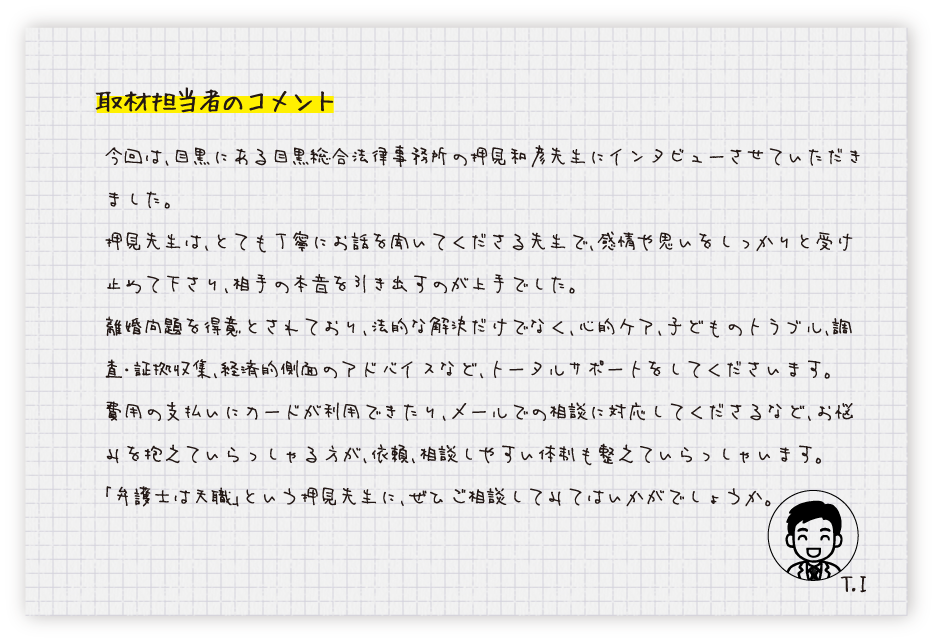 取材担当者のコメント
今回は、目黒にある目黒総合法律事務所の押見和彦先生にインタビューさせていただき
ました。
押見先生は、とても丁寧にお話を聞いてくださる先生で、感情や思いをしっかりと受け
止めて下さり、相手の本音を引き出すのが上手でした。
離婚問題を得意とされており、法的な解決だけでなく、心的ケア、子どものトラブル、調
査・証拠収集、経済的側面のアドバイスなど、トータルサポートをしてくださいます。
費用の支払いにカードが利用できたり、メールでの相談に対応してくださるなど、お悩
みを抱えていらっしゃる方が、依頼、相談しやすい体制も整えていらっしゃいます。
「弁護士は天職」という押見先生に、ぜひご相談してみてはいかがでしょうか。
T.I